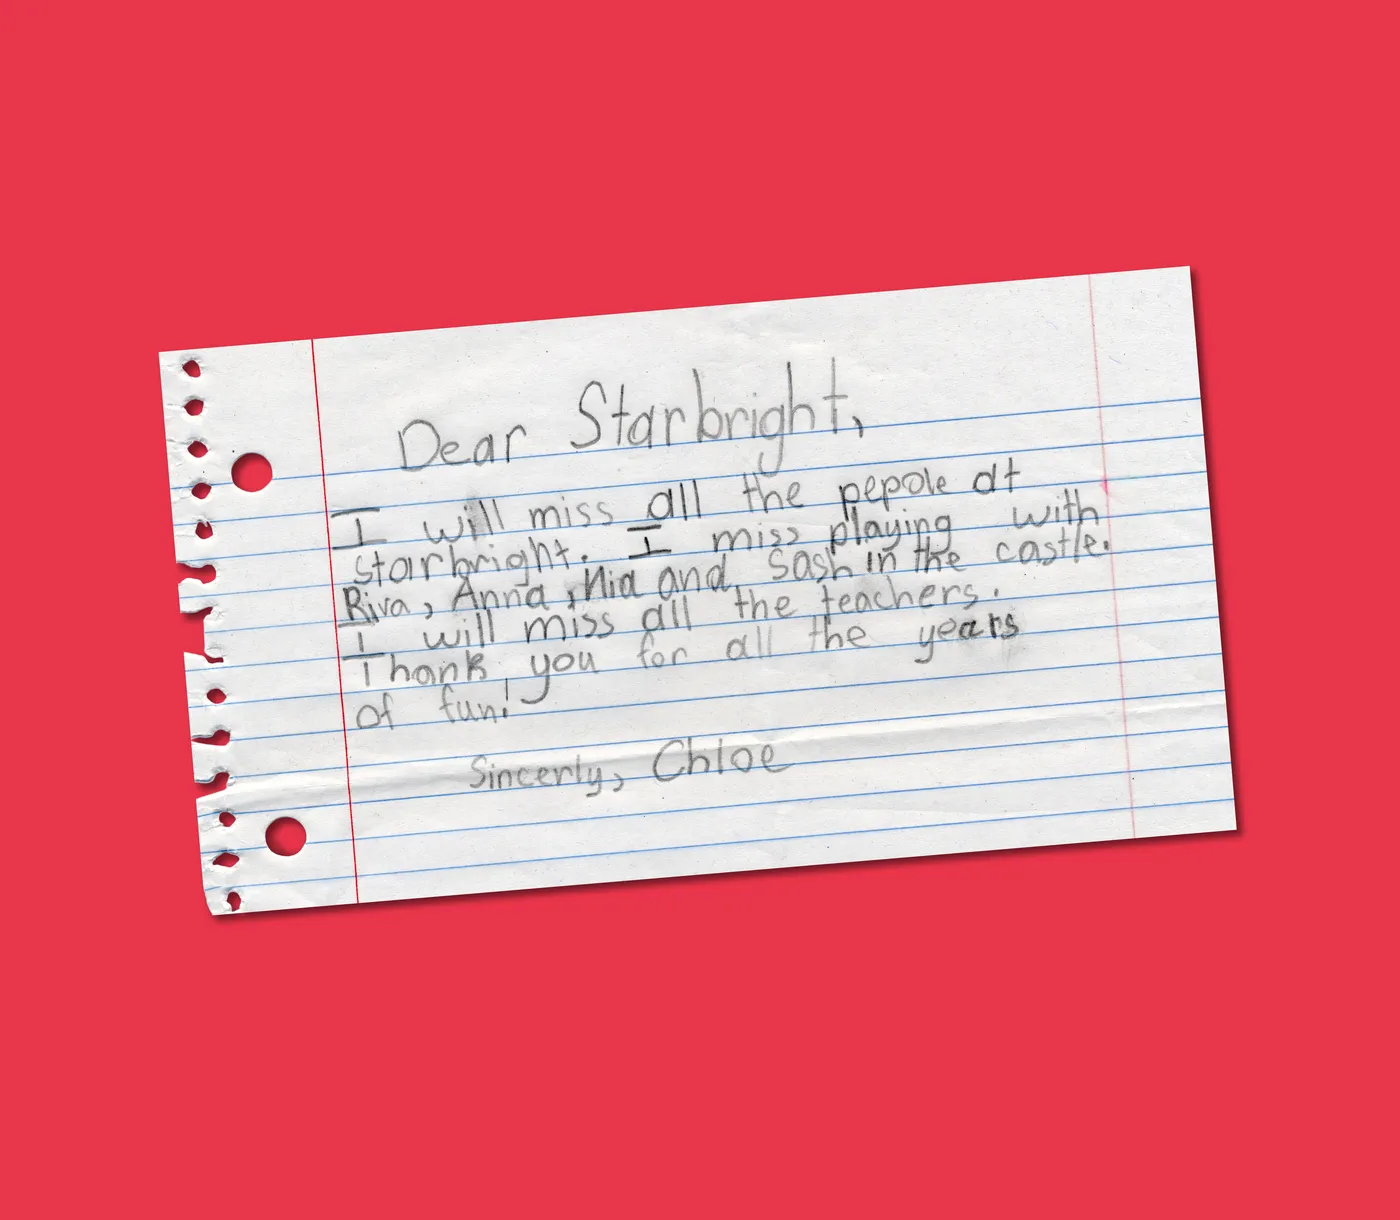 Dear Starbright,
I will miss all the pepole at
starbright. I miss playing with
Riva, Anna, Nia and Sash in the castle.
I will miss all the teachers.
Thank you for all the years
of fun!
Sincerly, Chloe